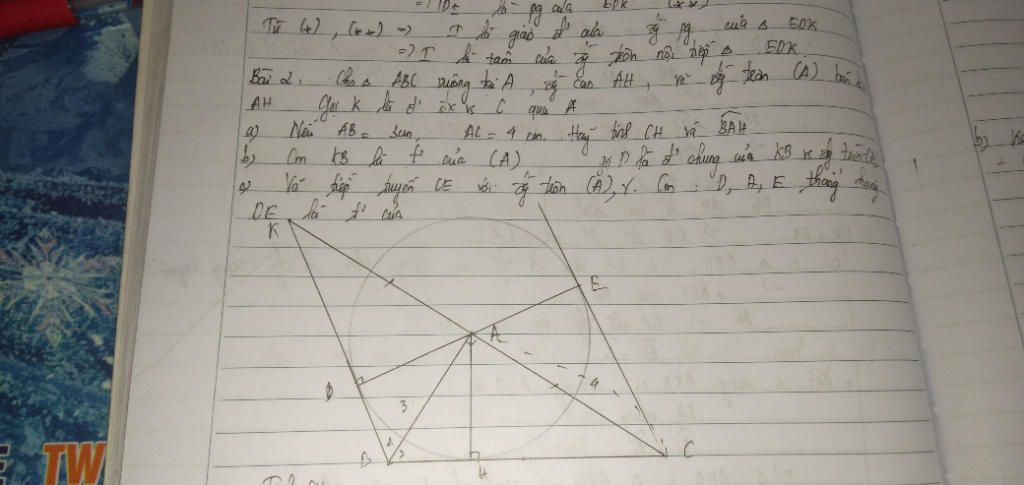 => DI là pg của EDK (**)
Từ (*), (**) => I là giao đ' của pg của △ EDK
=> I là tâm của đg tròn nội tiếp △ EDK
Bài 2: Cho △ ABC vuông tại A, đg cao AH, vẽ đg tròn (A) bán
AH Gọi K là đ' đx vs C qua A
a) Nếu AB = 3cm, AC = 4 cm. Hãy tính CH và BAH
b) Cm KB là t² của (A) gọi D là đ' chung của KB vs đg tròn
c) Vẽ tiếp tuyến CE với đg tròn (A), Cm: D, A, E thẳng hàng
DE là của
K
E
A
D
3
4
1
2
B
H
C
TW